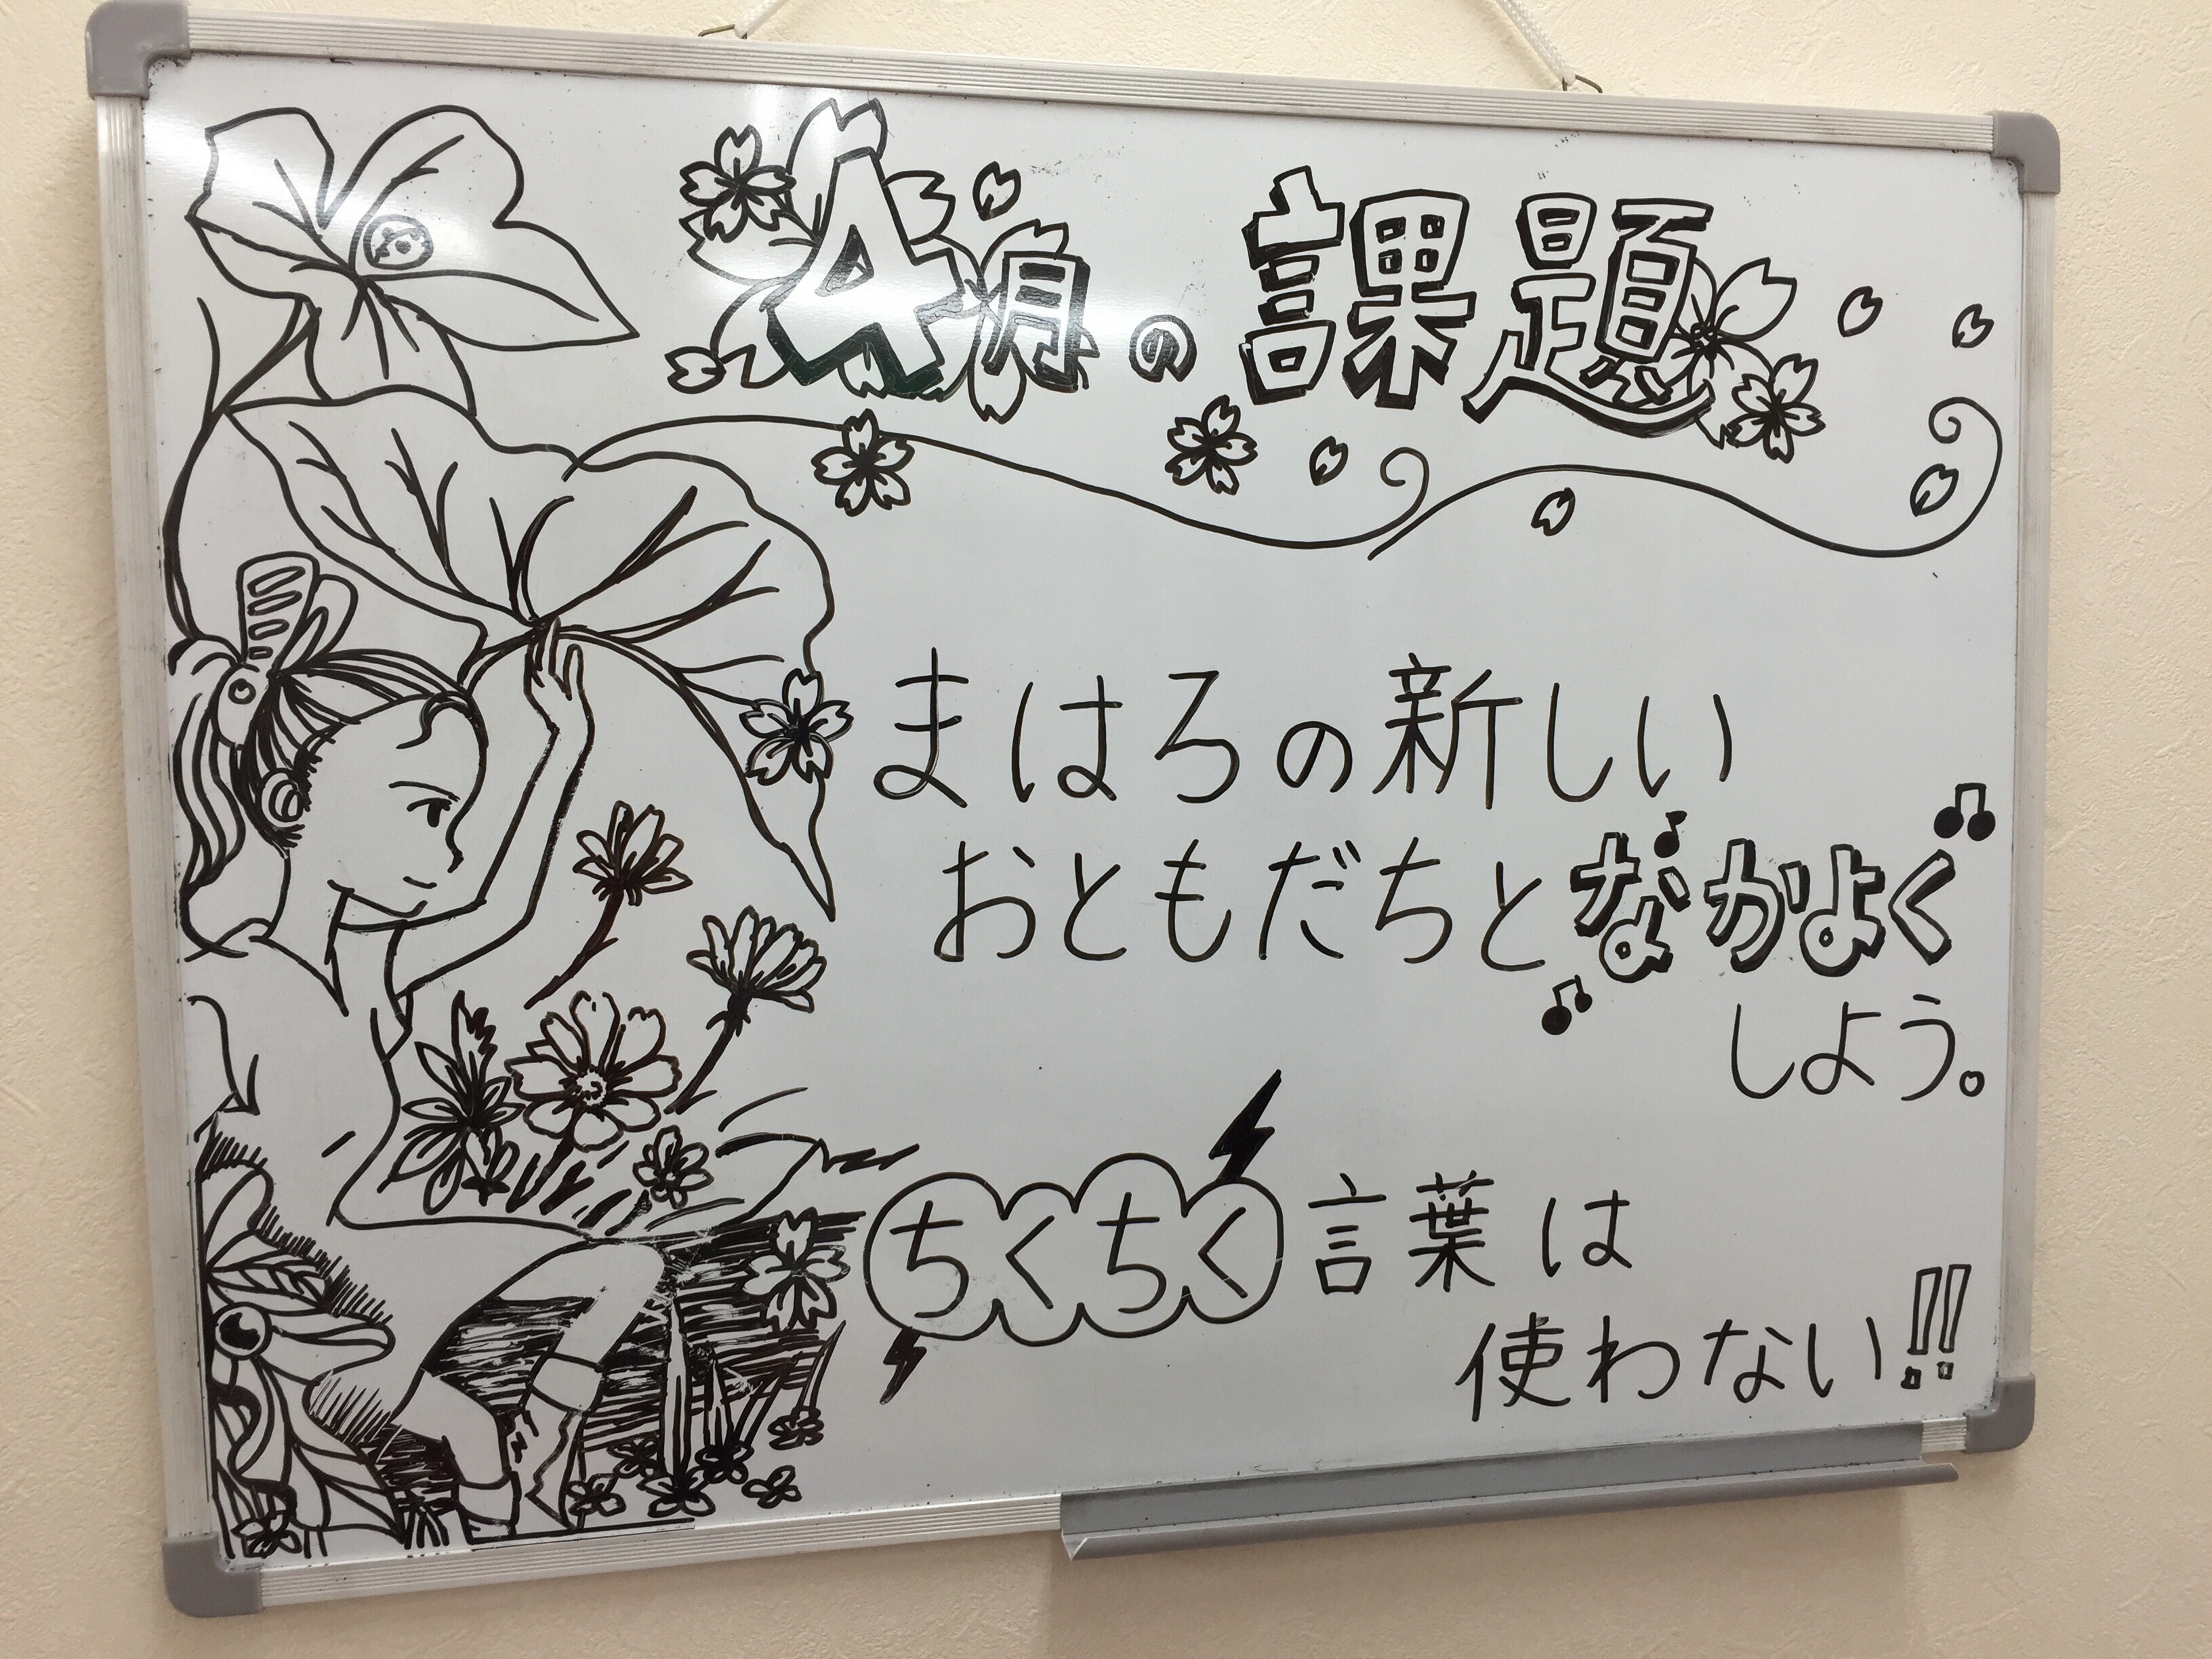 4月の課題
まはろの新しい
おともだちとなかよく
しよう。
ちくちく言葉は
使わない!!